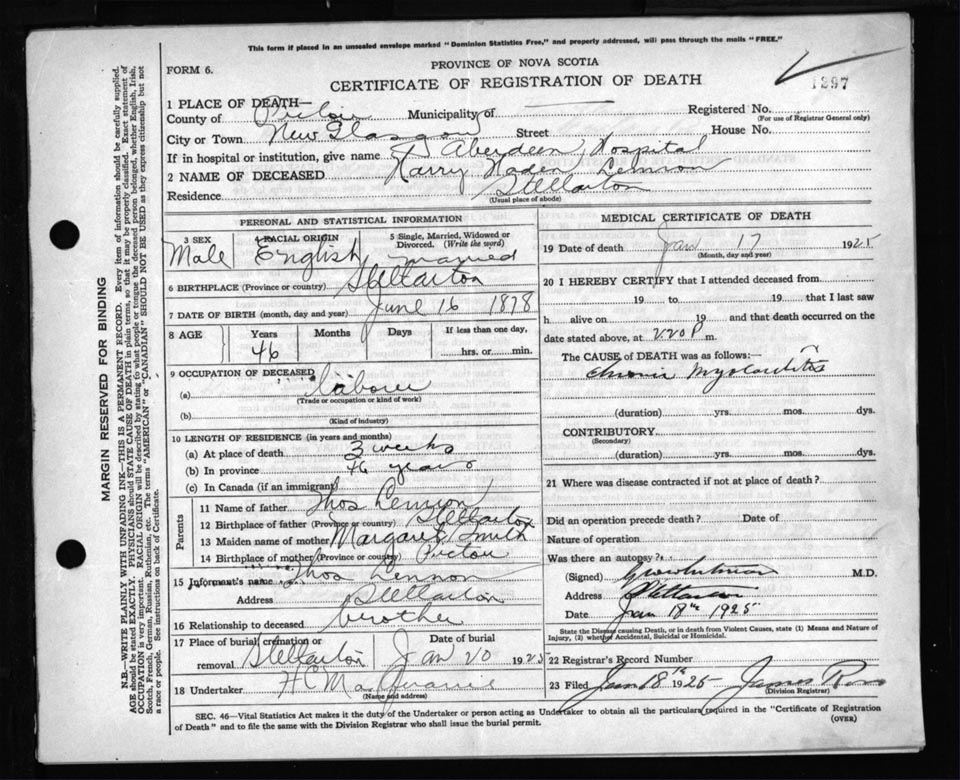 This form if placed in an unsealed envelope marked "Dominion Statistics Free," and properly addressed, will pass through the mails "FREE."
FORM 6.
PROVINCE OF NOVA SCOTIA
CERTIFICATE OF REGISTRATION OF DEATH
1297
1 PLACE OF DEATH—
County of Pictou Municipality of — Registered No.
(For use of Registrar General only)
City or Town New Glasgow Street House No.
If in hospital or institution, give name Aberdeen Hospital
2 NAME OF DECEASED Harry Lennon
Residence Stellarton
(Usual place of abode)
PERSONAL AND STATISTICAL INFORMATION
3 SEX Male
4 RACIAL ORIGIN English
5 Single, Married, Widowed or Divorced. (Write the word) married
6 BIRTHPLACE (Province or country) Stellarton
7 DATE OF BIRTH (month, day and year) June 16 1878
8 AGE Years 46 Months Days If less than one day, hrs. or min.
9 OCCUPATION OF DECEASED
(a) labourer
(Trade or occupation or kind of work)
(b)
(Kind of industry)
10 LENGTH OF RESIDENCE (in years and months)
(a) At place of death 3 weeks
(b) In province 46 years
(c) In Canada (if an immigrant)
Parents
11 Name of father Thos Lennon
12 Birthplace of father (Province or country) Stellarton
13 Maiden name of mother Margaret Smith
14 Birthplace of mother (Province or country) Pictou
15 Informant's name Thos Lennon
Address Stellarton
16 Relationship to deceased brother
17 Place of burial, cremation or removal Stellarton Date of burial Jan 20 1925
18 Undertaker H C
(Name and address)
MEDICAL CERTIFICATE OF DEATH
19 Date of death Jan 17 1925
(Month, day and year)
20 I HEREBY CERTIFY that I attended deceased from
19 to 19 that I last saw
h alive on 19 and that death occurred on
date stated above, at 220 P m.
The CAUSE OF DEATH was as follows:
chronic Myocarditis
(duration) yrs. mos. dys.
CONTRIBUTORY
(Secondary)
(duration) yrs. mos. dys.
21 Where was disease contracted if not at place of death?
Did an operation precede death? Date of
Nature of operation
Was there an autopsy?
(Signed) M.D.
Address Stellarton
Date Jan 18th 1925
State the Disease causing Death, or in death from Violent Causes, state (1) Means and Nature of Injury, (2) whether Accidental, Suicidal or Homicidal.
22 Registrar's Record Number
23 Filed Jan 18th 1925 James
(Division Registrar)
SEC. 46—Vital Statistics Act makes it the duty of the Undertaker or person acting as Undertaker to obtain all the particulars required in the "Certificate of Registration
of Death" and to file the same with the Division Registrar who shall issue the burial permit.
(OVER)
MARGIN RESERVED FOR BINDING
N.B.—WRITE PLAINLY WITH UNFADING INK—THIS IS A PERMANENT RECORD. Every item of information should be carefully supplied.
AGE should be stated EXACTLY. PHYSICIANS should STATE CAUSE OF DEATH in plain terms, so that it may be properly classified. Exact statement of
OCCUPATION is very important. RACIAL ORIGIN will be described by stating to what people or tongue the deceased person belonged, whether English, Irish,
Scotch, French, German, Russian, Ruthenian, etc. The terms "AMERICAN" or "CANADIAN" SHOULD NOT BE USED as they express citizenship but not
a race or people. See instructions on back of Certificate.